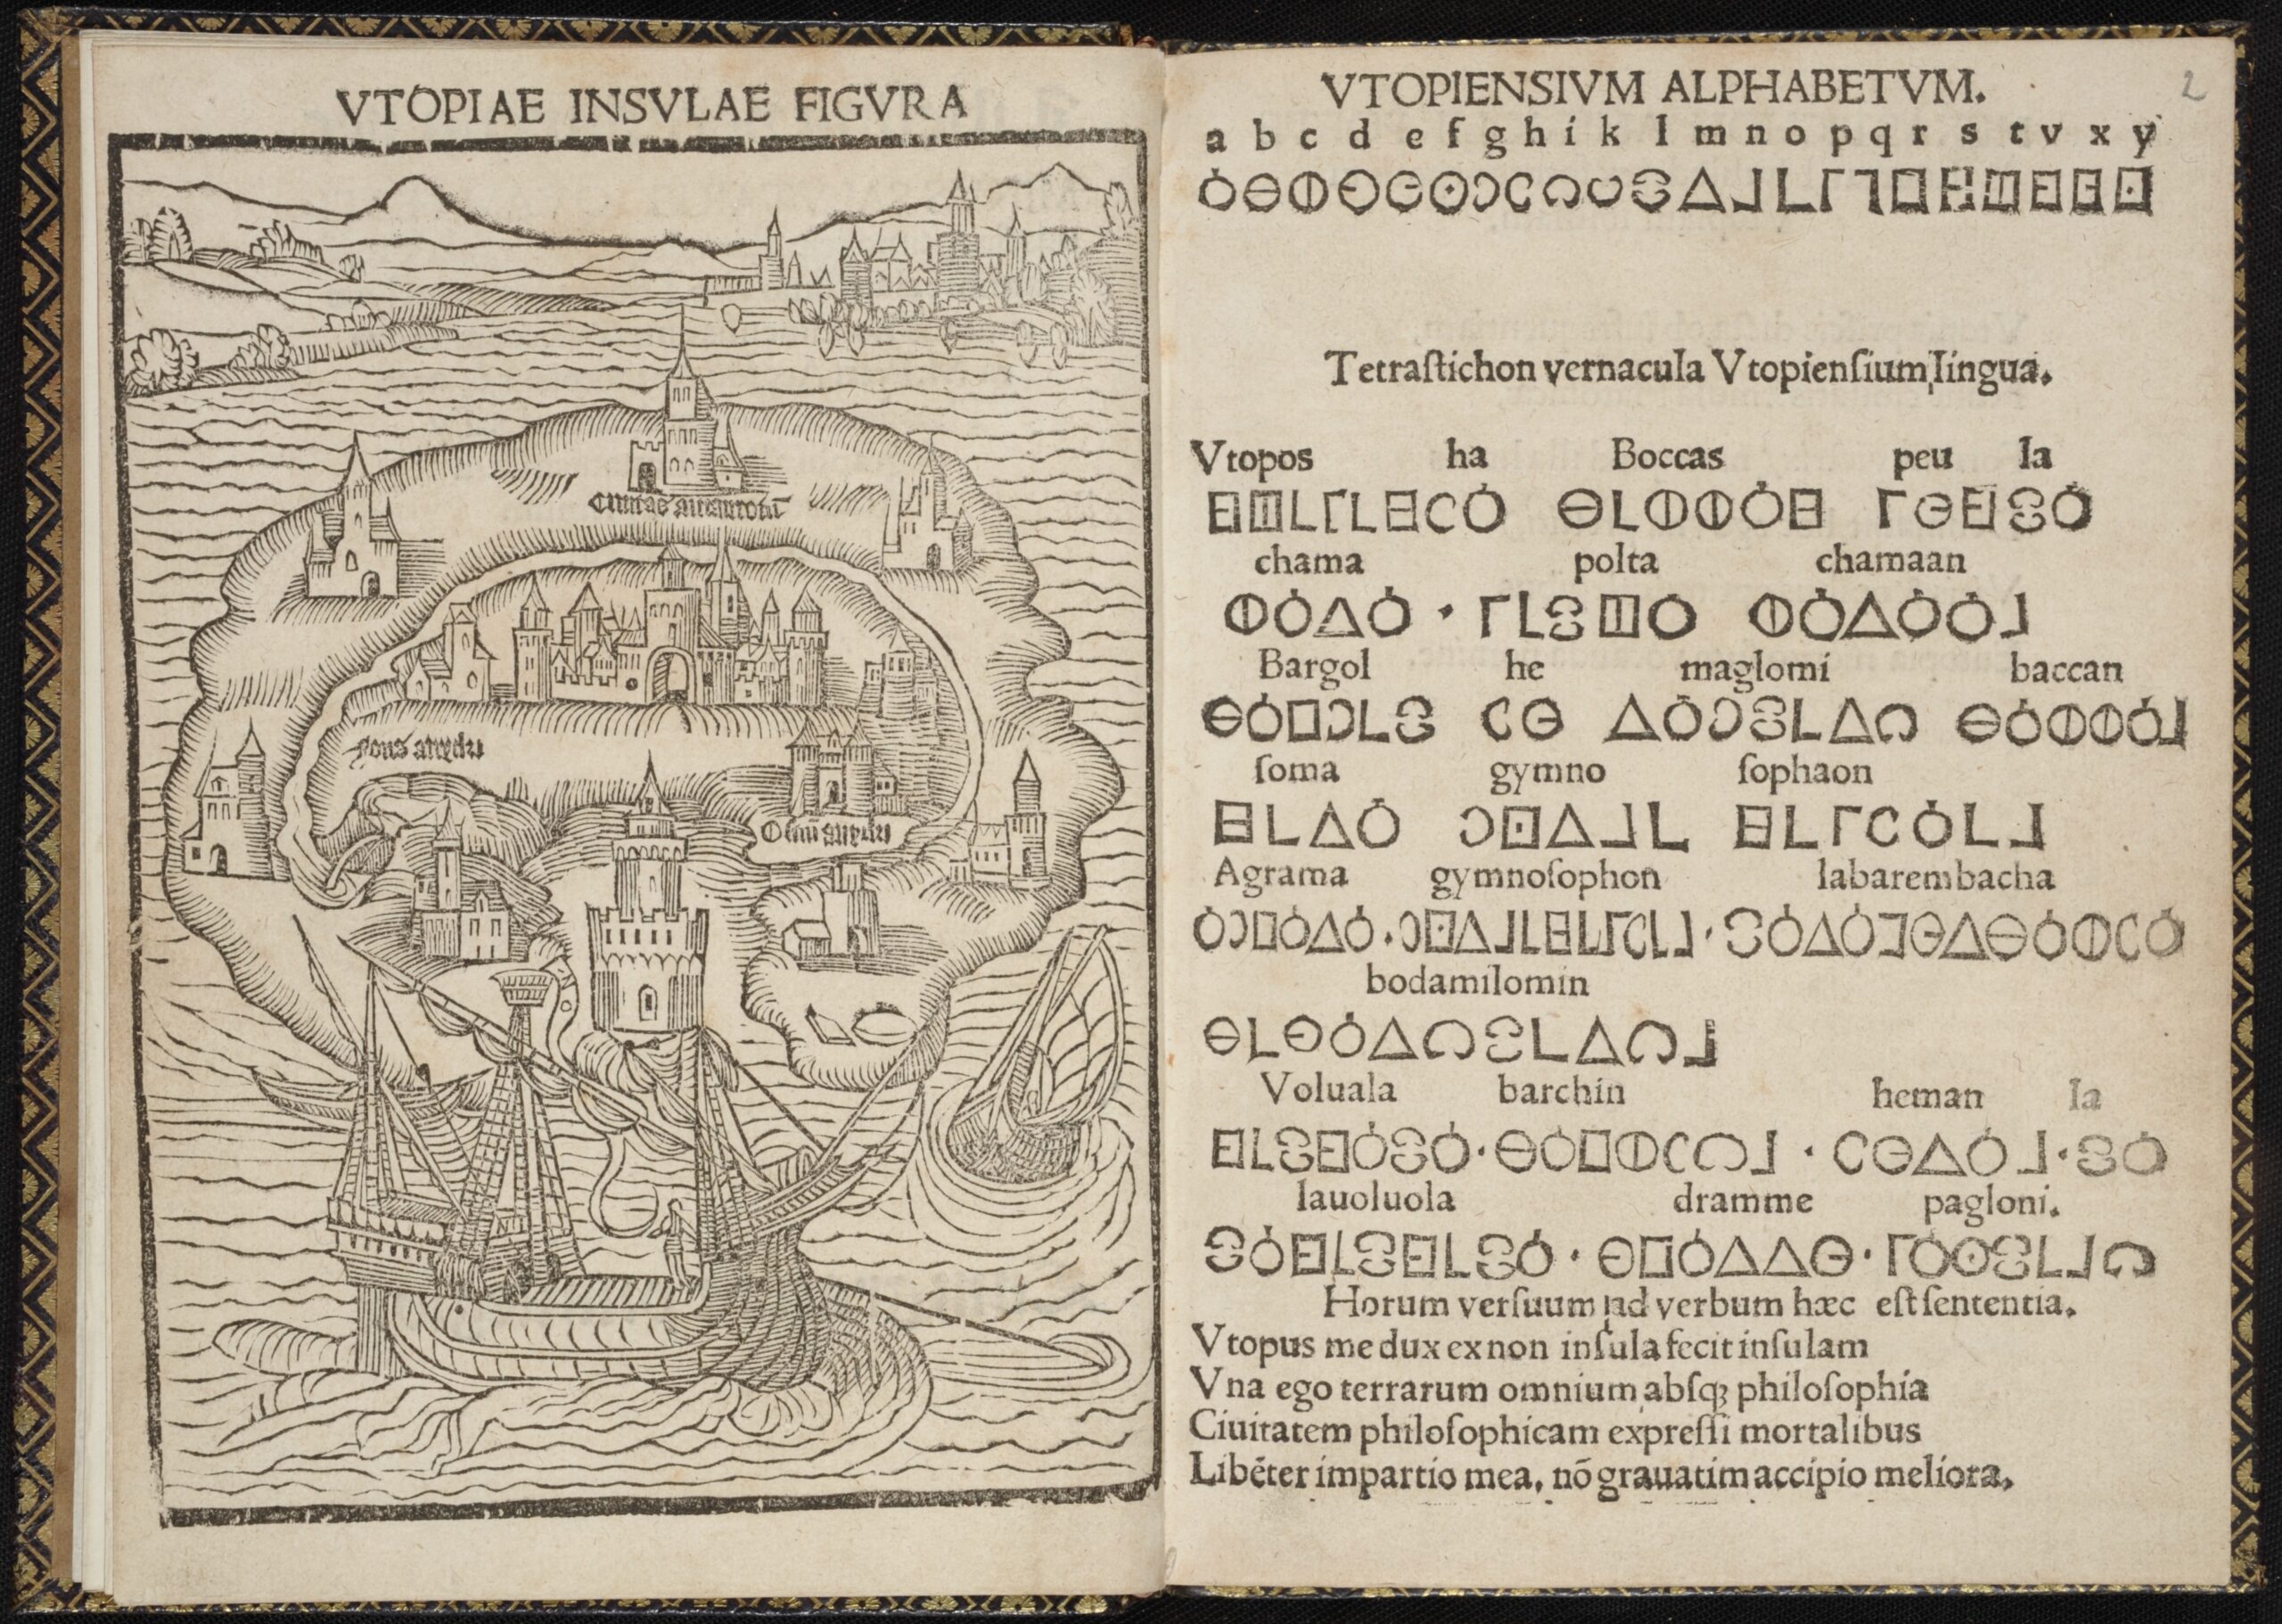 VTOPIAE INSVLAE FIGVRA
Ciuitas amaurotū
fons anydri
Ostiū anydri
2
VTOPIENSIVM ALPHABETVM.
a b c d e f g h i k l m n o p q r s t v x y
Tetraſtichon vernacula Vtopienſium lingua.
Vtopos ha Boccas peu la
chama polta chamaan
Bargol he maglomi baccan
ſoma gymno ſophaon
Agrama gymnoſophon labarembacha
bodamilomin
Voluala barchin heman la
lauoluola dramme pagloni.
Horum verſuum ad verbum hæc eſt ſententia.
Vtopus me dux ex non inſula fecit inſulam
Vna ego terrarum omnium abſqꝫ philoſophia
Ciuitatem philoſophicam expreſſi mortalibus
Libēter impartio mea, nō grauatim accipio meliora.